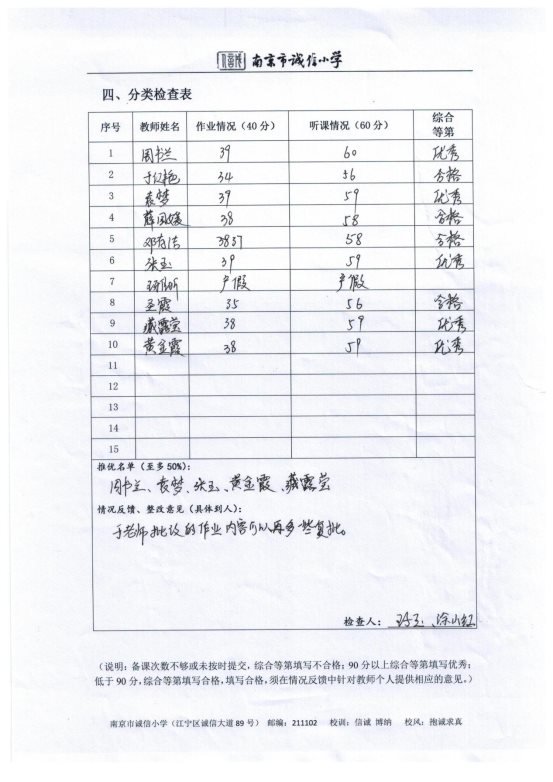 南京市诚信小学
四、分类检查表
序号 教师姓名 作业情况（40分） 听课情况（60分） 综合等第
1 周书兰 39 60 优秀
2 于红艳 34 56 合格
3 袁梦 39 59 优秀
4 薛凤媛 38 58 合格
5 邓有洁 38 37 58 合格
6 张玉 39 59 优秀
7 产假 产假
8 王霞 35 56 合格
9 臧露莹 38 59 优秀
10 黄金霞 38 59 优秀
11
12
13
14
15
推优名单（至多50%）：
周书兰、袁梦、张玉、黄金霞、臧露莹
情况反馈、整改意见（具体到人）：
于老师批改的作业内容可以再多些复批。
检查人： 涂小红
（说明：备课次数不够或未按时提交，综合等第填写不合格；90分以上综合等第填写优秀；
低于90分，综合等第填写合格，填写合格，须在情况反馈中针对教师个人提供相应的意见。）
南京市诚信小学（江宁区诚信大道89号） 邮编：211102 校训：信诚 博纳 校风：抱诚求真